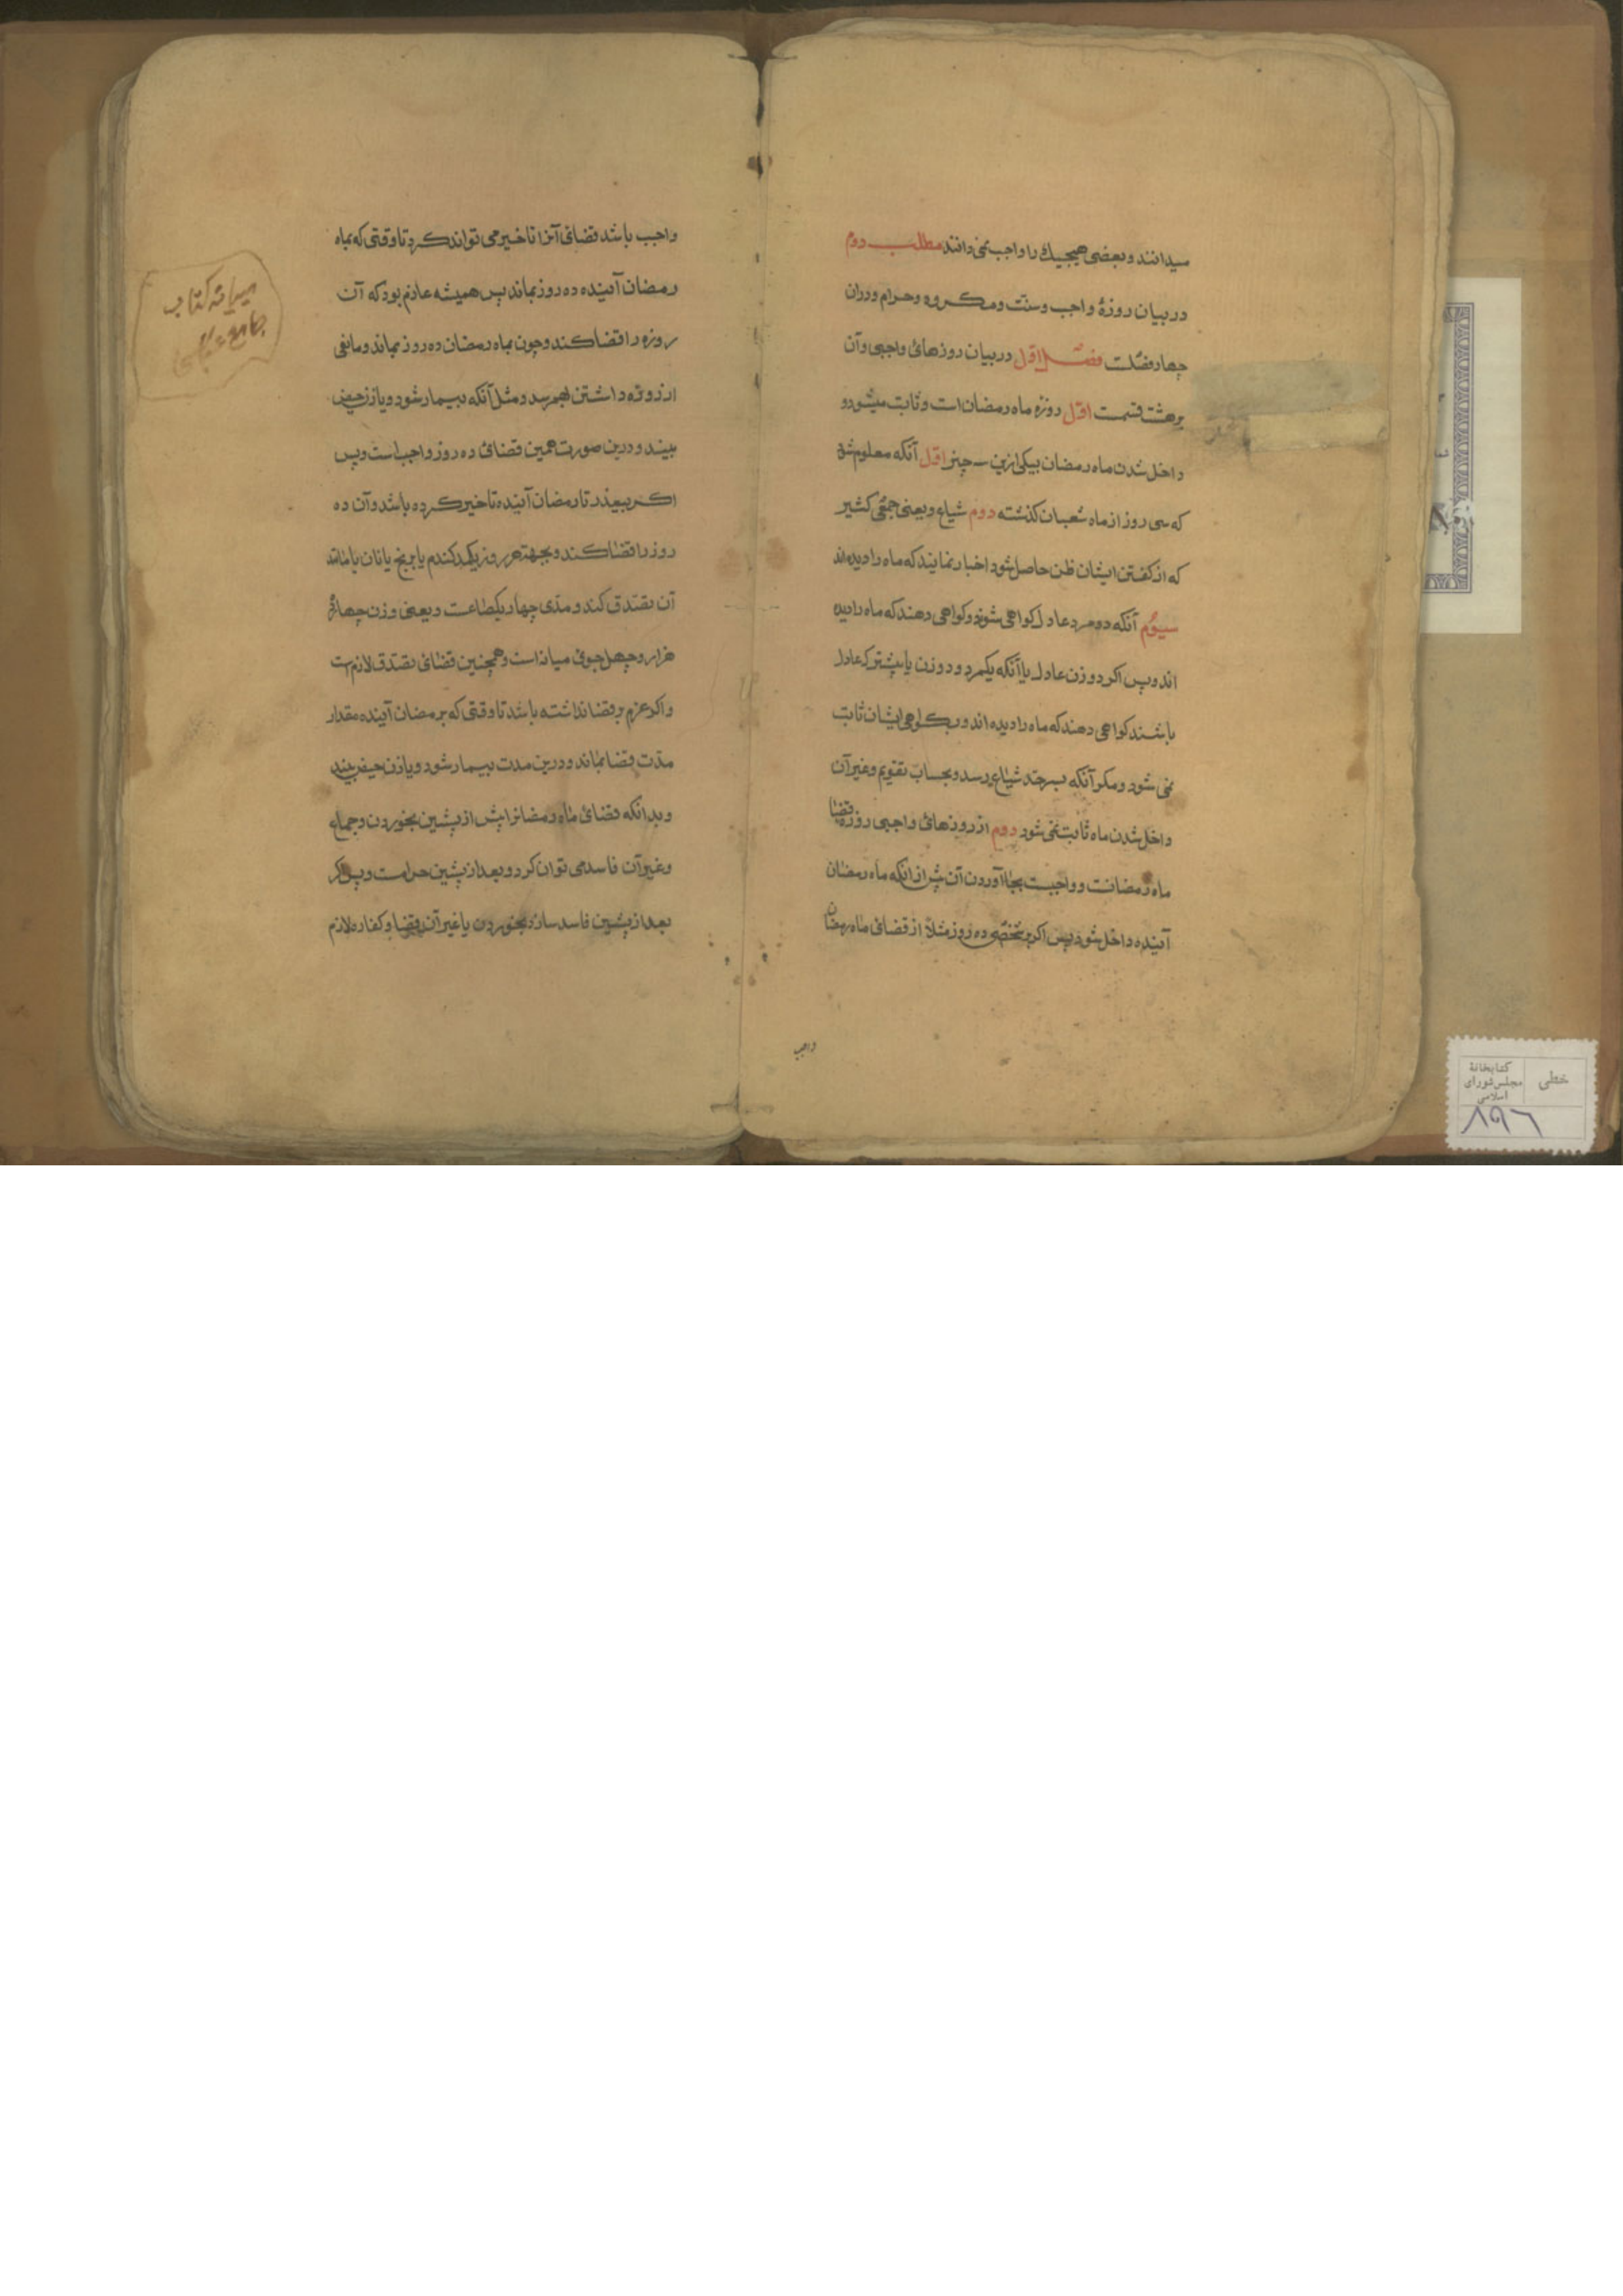 میدانند و بعضی هیچیك را واجب نمی دانند مطلب دوم
در بیان روزهٔ واجب و سنّت و مکروه و حرام و دران
چهار فصلست فصل اوّل در بیان روزهائ واجبی و آن
بر هشت قسمت اوّل روزه ماه رمضان است و ثابت میشود
داخل شدن ماه رمضان بیکی ازین سه چیز اوّل آنکه معلوم شود
که سی روز از ماه شعبان کذشته دوم شیاع و یعنی جمعی کثیر
که از کفتن ایشان ظن حاصل شود اخبار نمایند که ماه را دیده اند
سیوّم آنکه دو مرد عادل کواهی دهند که ماه را دیده
اند و پس اکر دو زن عادل یا آنکه یکمرد و دو زن یا بیشتر که عادل
باشند کواهی دهند که ماه را دیده اند و بکواهی ایشان ثابت
نمی شود و مکر آنکه بسر حد شیاع رسد و بحساب تقویم و غیر آن
داخل شدن ماه ثابت نمی شود دوم از روزهائ واجبی روزه قضا
ماه رمضانست و واجبست بجا آوردن آن پیش از انکه ماه رمضان
آینده داخل شود پس اکر شخصی ده روز مثلاً از قضائ ماه رمضان
واجب
واجب باشد قضائ آنرا تاخیر می تواند کرد تا وقتی که بماه
رمضان آینده ده روز بماند پس همیشه عازم بود که آن
روزه را قضا کند و چون بماه رمضان ده روز بماند و مانعی
از روزه داشتن بهم رسد و مثل آنکه بیمار شود و یا زن حیض
بیند و درین صورت همین قضائ ده روز واجب است و پس
اکر بیعذر تا رمضان آینده تاخیر کرده باشد و آن ده
روز را قضا کند و بجهة هر روز یکمد کندم یا برنج یا نان یا مانند
آن تصدّق کند و مدّی چهار یک صاعست و یعنی وزن
هزار و چهل جوئ میانه است و همچنین قضائ تصدّق لازم است
و اکر عزم بر قضا نداشته باشد تا وقتی که برمضان آینده مقدار
مدّت قضا بماند و درین مدت بیمار شود و یا زن حیض بیند
و بدانکه قضائ ماه رمضانرا پیش از پیشین بخوردن و جماع
و غیر آن فاسد می توان کرد و بعد از پیشین حرامست و پس اکر
بعد از پیشین فاسد سازد بخوردن یا غیر آن قضا و کفاره لازم
میرانه کتاب
جامع عباسی
خطی
کتابخانهٔ
مجلس شورای
اسلامی
۸۹۶